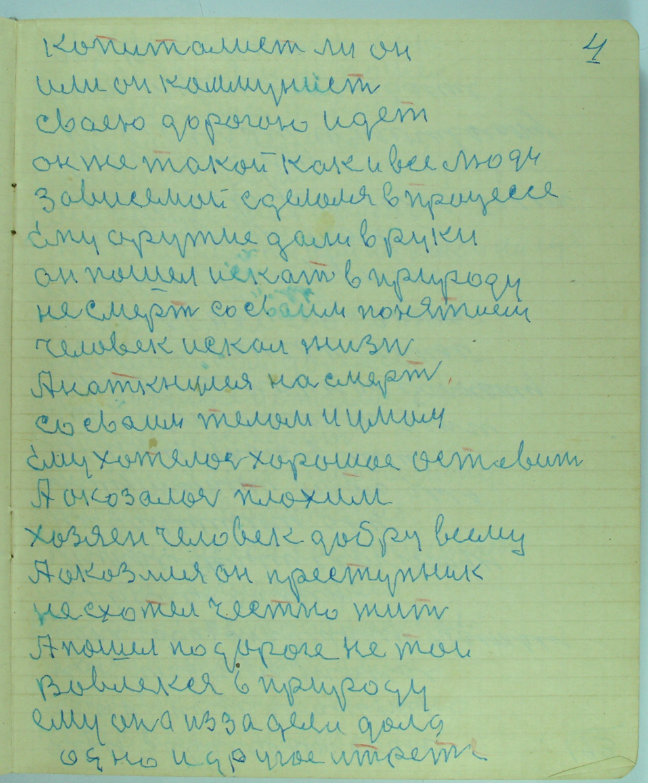 4
копиталист ли он
или он коммунист
сваею дорогою идет
он же такой как и все люди
зависемой сделоля в процессе
ему оружие дали в руки
он пошел искат в природу
не смерт со сваим понятием
человек искал жизн
А наткнулся на смерт
со сваим телом и умом
ему хотелос хорошое оставит
А окозалос плохим
хозяен человек добру всему
А окозлля он преступник
не схотел честно жит
А пошел по дороге не той
Вовлекся в природу
ему она изза дели
одно и другое и трети